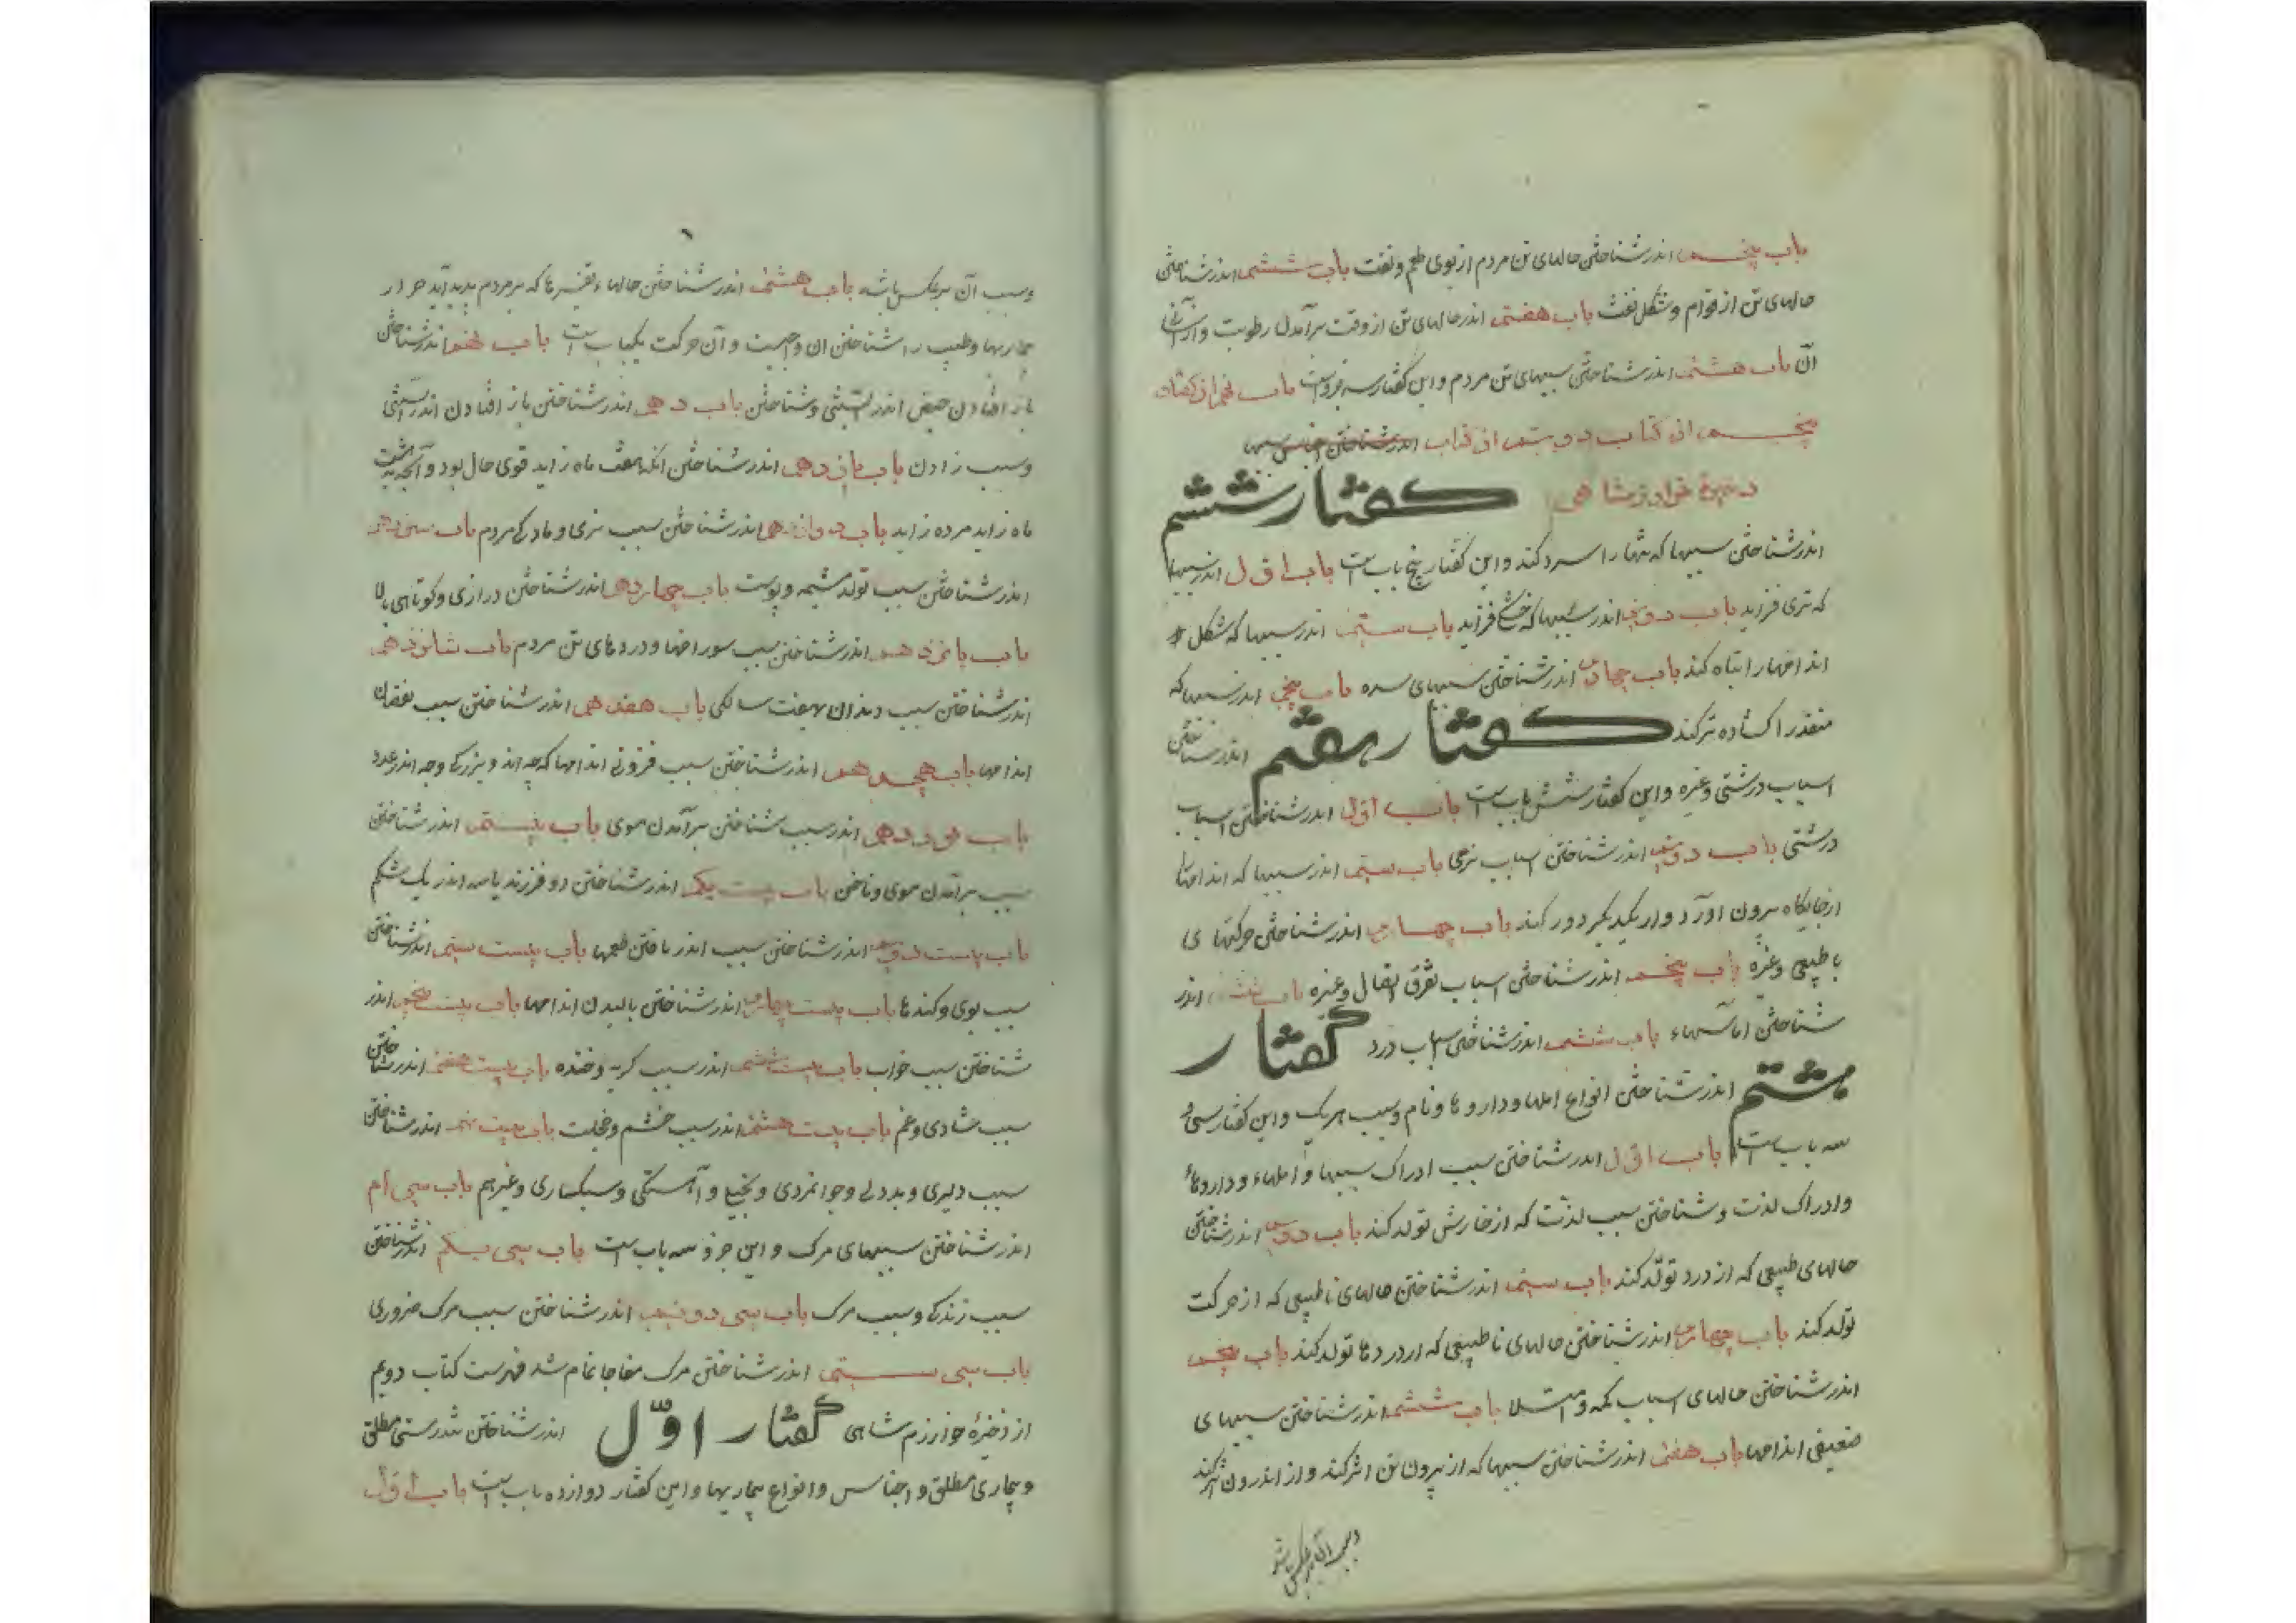 باب پنجم اندر شناختن حالهای تن مردم از بوی طعم و نفث باب ششم اندر شناختن
حالهای تن از قوام و شکل نفث باب هفتم اندر حالهای تن از وقت برآمدن رطوبت و
آن باب هشتم اندر شناختن سببهای تن مردم و این گفتار سه جزوست باب
پنجم از کتاب دویم از اندر شناختن
ذخیره خوارزمشاهی گفتار ششم
اندر شناختن سببها که تنها را سرد کند و این گفتار پنج باب است باب اول اندر سببها
که تری فزاید باب دویم اندر سببها که خشکی فزاید باب سیم اندر سببها که شکل
اندامها را تباه کند باب چهارم اندر شناختن سببهای سده باب پنجم اندر سببها که
منفذ را کشاده تر کند گفتار هفتم اندر شناختن
اسباب درشتی و غیره و این گفتار شش باب است باب اول اندر شناختن اسباب
درشتی باب دویم اندر شناختن اسباب نرمی باب سیم اندر سببها که اندامها
از جایگاه بیرون آورد و از یکدیگر دور کند باب چهارم اندر شناختن حرکتهای
باطبیعی و غیره باب پنجم اندر شناختن اسباب تفرق اتصال و غیره باب ششم اندر
شناختن اماسهاء باب ششم اندر شناختن اسباب درد گفتار
هشتم اندر شناختن انواع المها و داروها و نام و سبب هریک و این گفتار سی و
سه باب است باب اول اندر شناختن سبب ادراک سببها و المهاء و داروهاء
و ادراک لذت و شناختن سبب لذت که از خارش تولد کند باب دویم اندر شناختن
حالهای طبیعی که از درد تولد کند باب سیم اندر شناختن حالهای ناطبیعی که از حرکت
تولد کند باب چهارم اندر شناختن حالهای ناطبیعی که از دردها تولد کند باب پنجم
اندر شناختن حالهای اسباب تخمه و امتلا باب ششم اندر شناختن سببهای
ضعیفی اندامها باب هفتم اندر شناختن سببها که از بیرون تن اثر کند و از اندرون اثر کند
و سبب آن بر عکس باشد
و سبب آن بر عکس باشد باب هشتم اندر شناختن حالها و تغیرها که بر مردم پدید آید
بیماریها و طبیب را شناختن آن واجبست و آن حرکت یکباب است باب نهم اندر شناختن
باز افتادن حیض اندر و شناختن باب دهم اندر شناختن باز افتادن اندر آبستنی
و سبب زادن باب یازدهم اندر شناختن آنکه بهفت ماه زاید قوی حال بود و آنچه بهشت
ماه زاید مرده زاید باب دوازدهم اندر شناختن سبب نری و مادگی مردم باب سیزدهم
اندر شناختن سبب تولد مشیمه و پوست باب چهاردهم اندر شناختن درازی و کوتاهی بالا
باب پانزدهم اندر شناختن سبب سوراخها و دردهای تن مردم باب شانزدهم
اندر شناختن سبب دندان بهفت سالگی باب هفدهم اندر شناختن سبب نقصان
اندامها باب هجدهم اندر شناختن سبب فزونی اندامها که چه اندر بزرگی و چه اندر عدد
باب نوزدهم اندر سبب شناختن برآمدن موی باب بیستم اندر شناختن
سبب برآمدن موی و ناخن باب بیست یکم اندر شناختن دو فرزند یا سه اندر یک شکم
باب بیست دویم اندر شناختن سبب اندر یافتن طعمها باب بیست سیم اندر شناختن
سبب بوی و کندها باب بیست چهارم اندر شناختن بالیدن اندامها باب بیست پنجم اندر
شناختن سبب خواب باب بیست ششم اندر سبب گریه و خنده باب بیست هفتم اندر شناختن
سبب شادی و غم باب بیست هشتم اندر سبب خشم و خجلت باب بیست نهم اندر شناختن
سبب دلیری و بددلی و جوانمردی و بخیلی و آهستگی و سبکساری و غیرهم باب سی ام
اندر شناختن سببهای مرگ و این جزؤ سه باب است باب سی یکم اندر شناختن
سبب زندگی و سبب مرگ باب سی دویم اندر شناختن سبب مرگ ضروری
باب سی سیم اندر شناختن مرگ مفاجا تمام شد فهرست کتاب دویم
از ذخیرۀ خوارزمشاهی گفتار اوّل اندر شناختن تندرستی مطلق
و بیماری مطلق و اجناس و انواع بیماریها و این گفتار دوازده باب است باب اول